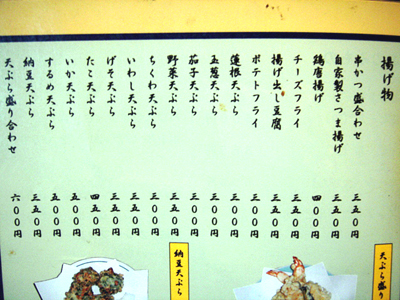 揚げ物
串かつ盛合わせ 三五〇円
自家製さつま揚げ 三五〇円
鶏唐揚げ 四〇〇円
チーズフライ 三五〇円
揚げ出し豆腐 三五〇円
ポテトフライ 三〇〇円
蓮根天ぷら 三〇〇円
玉葱天ぷら 三〇〇円
茄子天ぷら 三〇〇円
野菜天ぷら 三五〇円
ちくわ天ぷら 三〇〇円
いわし天ぷら 三五〇円
げそ天ぷら 三五〇円
たこ天ぷら 四五〇円
いか天ぷら 五〇〇円
するめ天ぷら 五〇〇円
納豆天ぷら 三五〇円
天ぷら盛り合わせ 六〇〇円
天ぷら盛り
納豆天ぷら